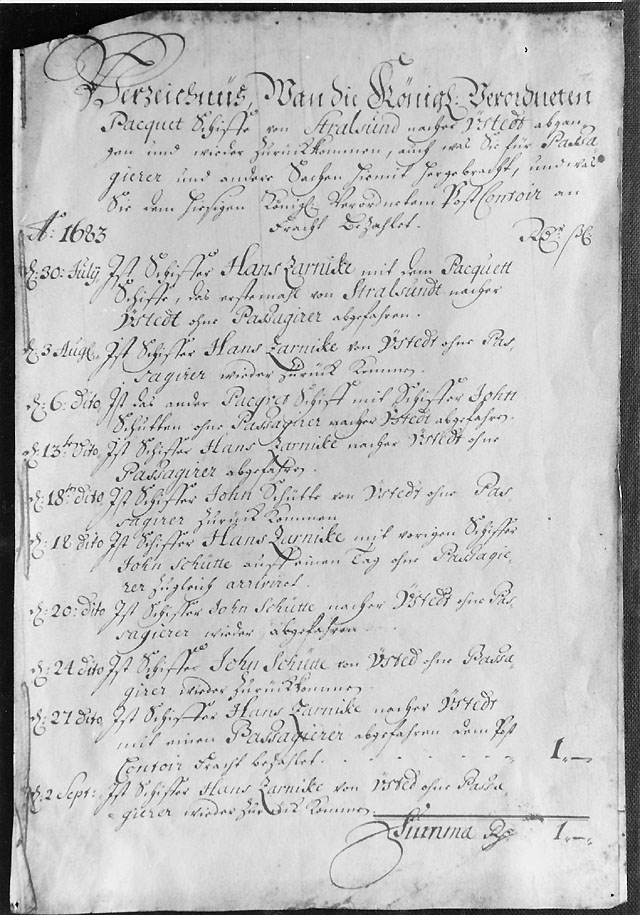 Verzeichnüß, Wan die Königl: Verordneten
Pacquet Schiffe von Stralsund nacher Ystedt abgan-
gen und wieder Zurückkommen, auch was Sie für Passa
gierer und andere Sachen hiemit hergebracht, und was
Sie dem hiesigen Königl Verordnetem Post Contoir an
Fracht Bezahlet.
A: 1683
d: 30: July Ist Schiffer Hans Zarnike mit dem Pacquett
Schiffe, das erstemahl von Stralsundt nacher
Ystedt ohne Passagirer abgefahren.
d: 3 Augl. Ist Schiffer Hans Zarnike von Ystedt ohne Pas-
sagirer wieder zurück Kommen.
d: 6: dito Ist das ander Pacqvet Schiff mit Schiffer John
Schütten ohne Passagirer nacher Ystedt abgefahren.
d: 13ten dito Ist Schiffer Hans Zarnike nacher Ystedt ohne
Passagirer abgefahren.
d: 18ten dito Ist Schiffer John Schütte von Ystedt ohne Pas
sagirer Zurück Kommen
d: 18 dito Ist Schiffer Hans Zarnike mit vorigen Schiffer
John Schütte auff einen Tag ohne Passagie-
rer zugleich arriviret.
d: 20: dito Ist Schiffer John Schütte nacher Ystedt ohne Pas
sagierer wieder abgefahren
d: 24 dito Ist Schiffer John Schütte von Ysted ohne Passa-
girer wieder Zurückkommen
d: 27 dito Ist Schiffer Hans Zarnike nacher Ystedt
mit einen Passagierer abgefahren dem Post
Contoir Fracht bezahlet. . . . . . . . 1,,—
d: 2 Sept: Ist Schiffer Hans Zarnike von Ysted ohne Passa-
gierer wieder Zurück Kommen
Summa 1,,—